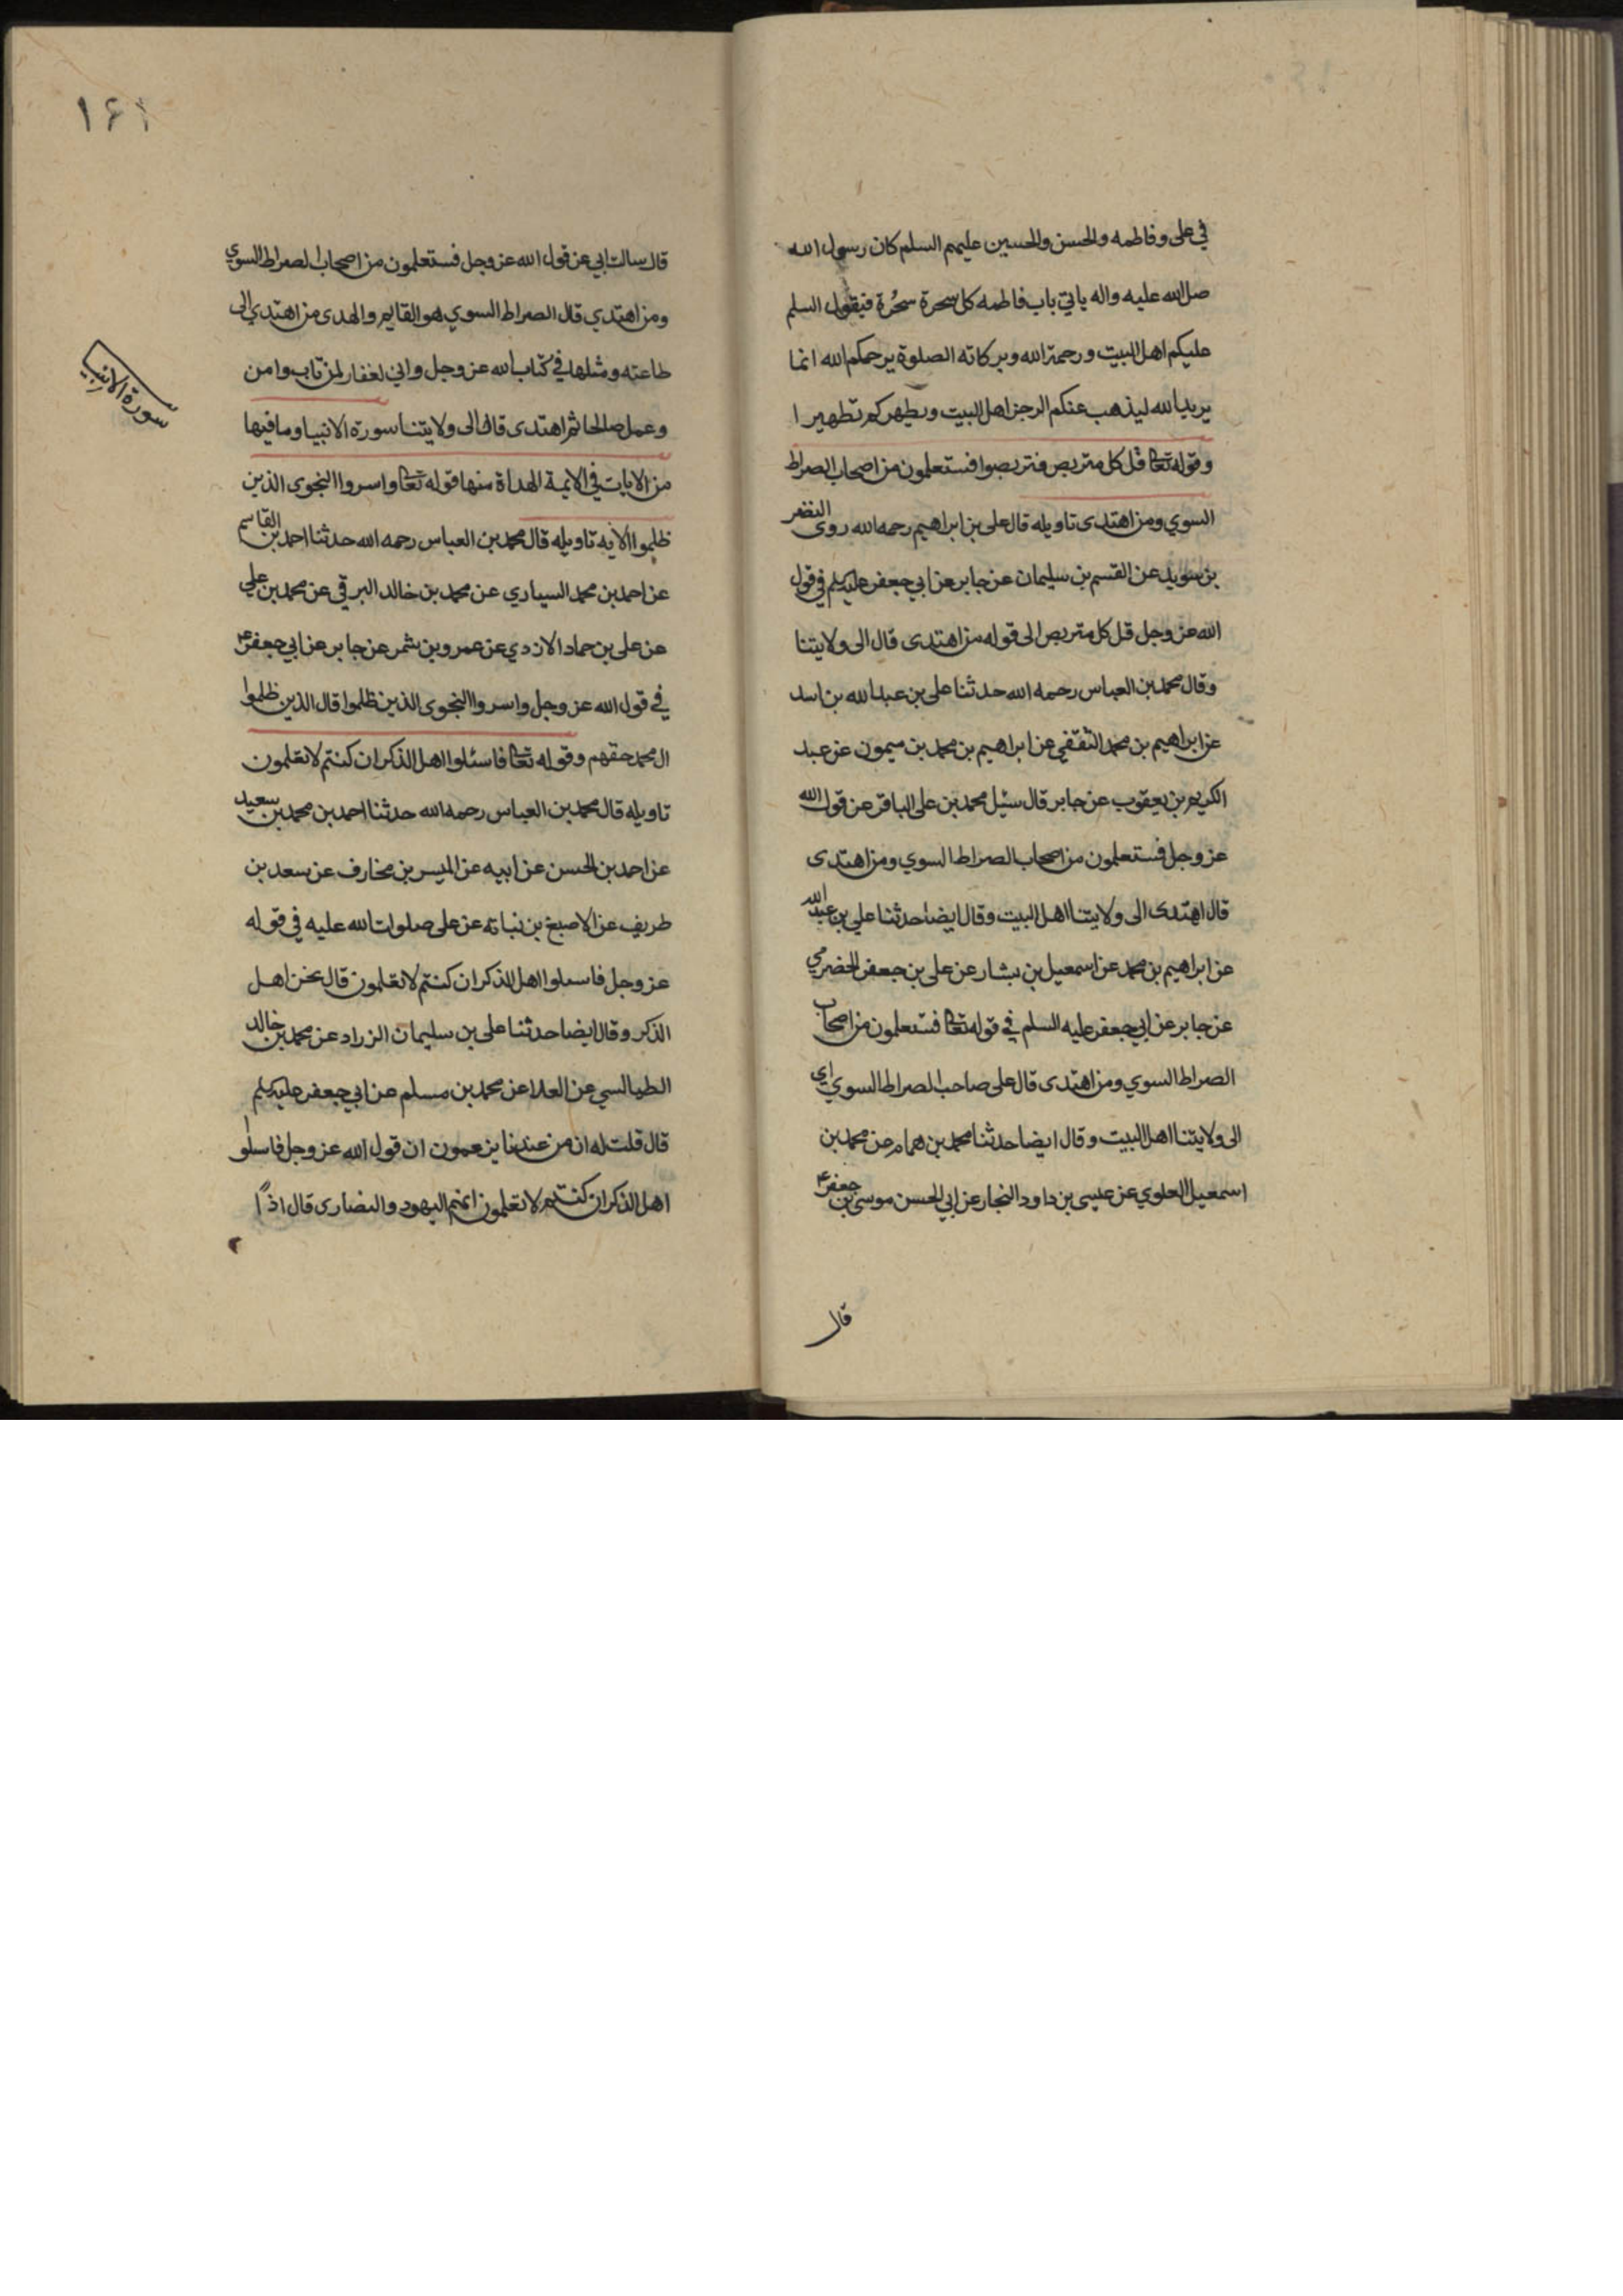 في على وفاطمه والحسن والحسين عليهم السلم كان رسول الله
صل الله عليه واله ياتي باب فاطمه كل سحرة سحُرة فيقول السلم
عليكم اهل البيت ورحمة الله وبركاته الصلوة يرحمكم الله انما
يريد الله ليذهب عنكم الرجز اهل البيت ويطهركم تطهيرا
وقوله تعا قل كل متربص فتربصوا فستعلمون من اصحاب الصراط
السوي ومن اهتدى تاويله قال على بن ابراهيم رحمه الله روى النضر
بن سويد عن القسم بن سليمان عن جابر عن ابي جعفر عليه السلم في قول
الله عز وجل قل كل متربص الى قوله من اهتدى قال الى ولايتنا
وقال محمد بن العباس رحمه الله حدثنا على بن عبد الله بن اسد
عن ابراهيم بن محمد الثقفي عن ابراهيم بن محمد بن ميمون عن عبد
الكريم بن يعقوب عن جابر قال سئل محمد بن على الباقر عن قول الله
عز وجل فستعلمون من اصحاب الصراط السوي ومن اهتدى
قال اهتدى الى ولايتنا اهل البيت وقال ايضا حدثنا علي بن عبد الله
عن ابراهيم بن محمد عن اسمعيل بن بشار عن على بن جعفر الحضرمي
عن جابر عن ابي جعفر عليه السلم في قوله تعا فستعلمون من اصحاب
الصراط السوي ومن اهتدى قال على صاحب الصراط السوي اي
الى ولايتنا اهل البيت وقال ايضا حدثنا محمد بن همام عن محمد بن
اسمعيل العلوي عن عيسى بن داود النجار عن ابي الحسن موسى بن جعفر ع
قال
١٤١
قال سالت ابي عن قول الله عز وجل فستعلمون من اصحاب الصراط السوي
ومن اهتدي قال الصراط السوي هو القايم والهدى من اهتدي الى
طاعته ومثلها في كتاب الله عز وجل واني لغفار لمن تاب وامن
وعمل صالحا ثم اهتدى قال الى ولايتنا سورة الانبيا وما فيها
من الايات في الايمة الهداة منها قوله تعا واسروا النجوى الذين
ظلموا الآيه تاويله قال محمد بن العباس رحمه الله حدثنا احمد بن القاسم
عن احمد بن محمد السياري عن محمد بن خالد البرقي عن محمد بن علي
عن على بن حماد الازدي عن عمرو بن شمر عن جابر عن ابي جعفر ع
في قول الله عز وجل واسروا النجوى الذين ظلموا قال الذين ظلموا
ال محمد حقهم وقوله تعا فاسئلوا اهل الذكر ان كنتم لا تعلمون
تاويله قال محمد بن العباس رحمه الله حدثنا احمد بن محمد بن سعيد
عن احمد بن الحسن عن ابيه عن الميسر بن مخارف عن سعد بن
طريف عن الاصبغ بن نباته عن على صلوات الله عليه في قوله
عز وجل فاسىلوا اهل الذكر ان كنتم لا تعلمون قال نحن اهل
الذكر وقال ايضا حدثنا على بن سليمان الزراد عن محمد بن خالد
الطيالسي عن العلا عن محمد بن مسلم عن ابي جعفر عليه السلم
قال قلت له ان من عندنا يزعمون ان قول الله عز وجل فاسئلو
اهل الذكر ان كنتم لا تعلمون انهم اليهود والنصارى قال اذًا
سورة الانبيا